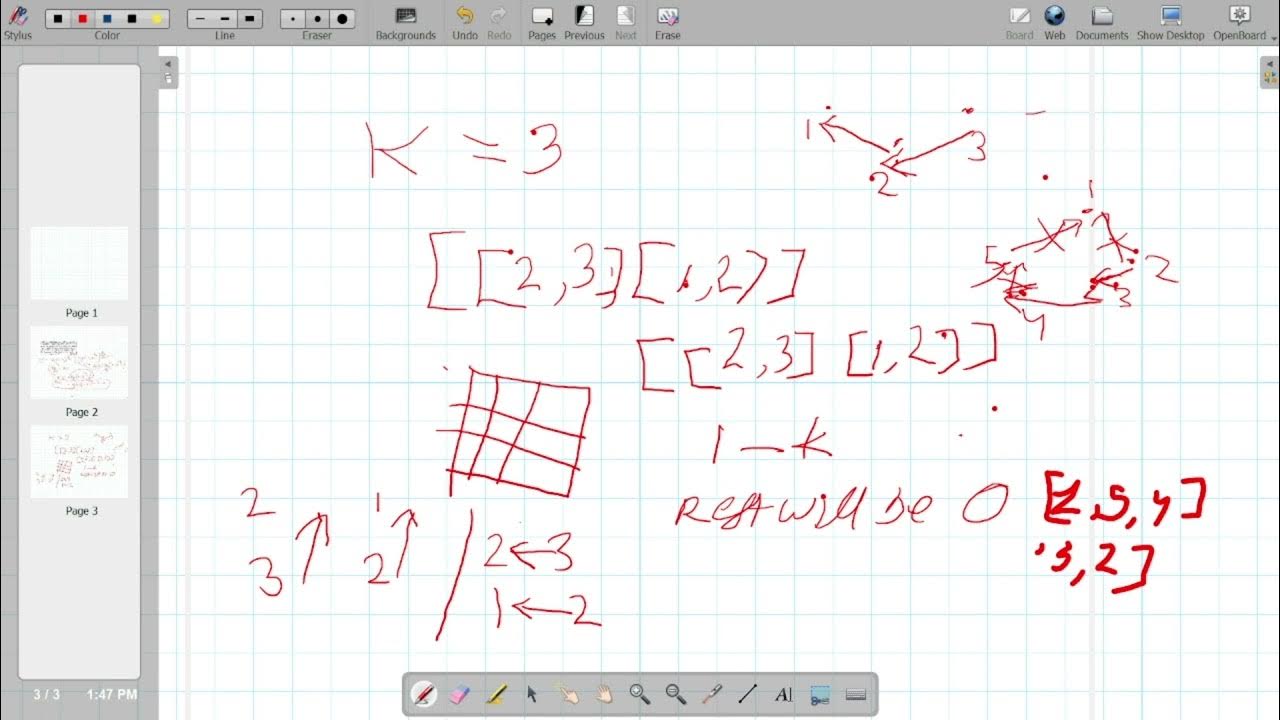 Stylus Color Line Eraser Backgrounds Undo Redo Pages Previous Next Erase Board Web Documents Show Desktop OpenBoard
K = 3
1 2 3
[[2,3][1,2]]
1 2 3 4 5
[[2,3] [1,2]]
1 — K
Rest will be 0
2 3
1 2
2 ← 3
1 ← 2
3,2]
Page 1
Page 2
Page 3
3 / 3 1:47 PM
AI